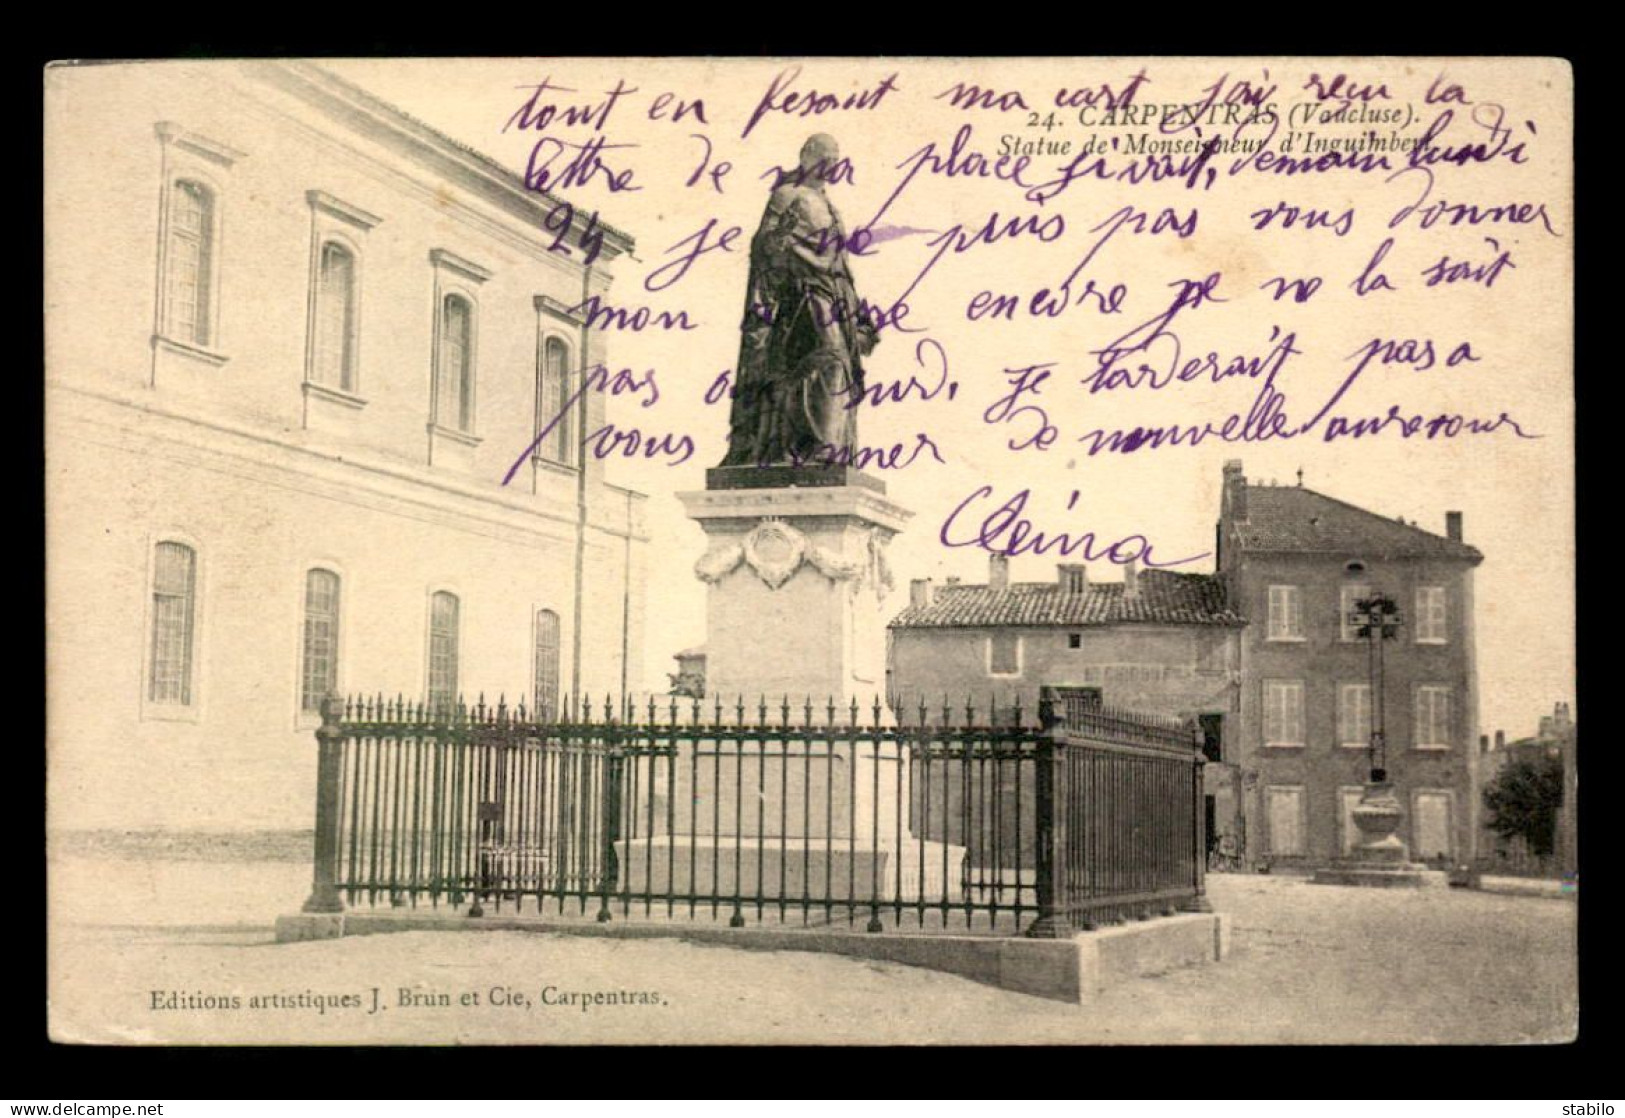 tout en fesant ma cart jai reçu la
lettre de ma place ji vait, demain lundi
24 je ne puis pas vous donner
mon adresse encore je ne la sait
pas au surd, je tarderait pas a
vous donner de nouvelle aurevour
Cleina
24. CARPENTRAS (Vaucluse).
Statue de Monseigneur d'Inguimbert
Editions artistiques J. Brun et Cie, Carpentras.
stabilo